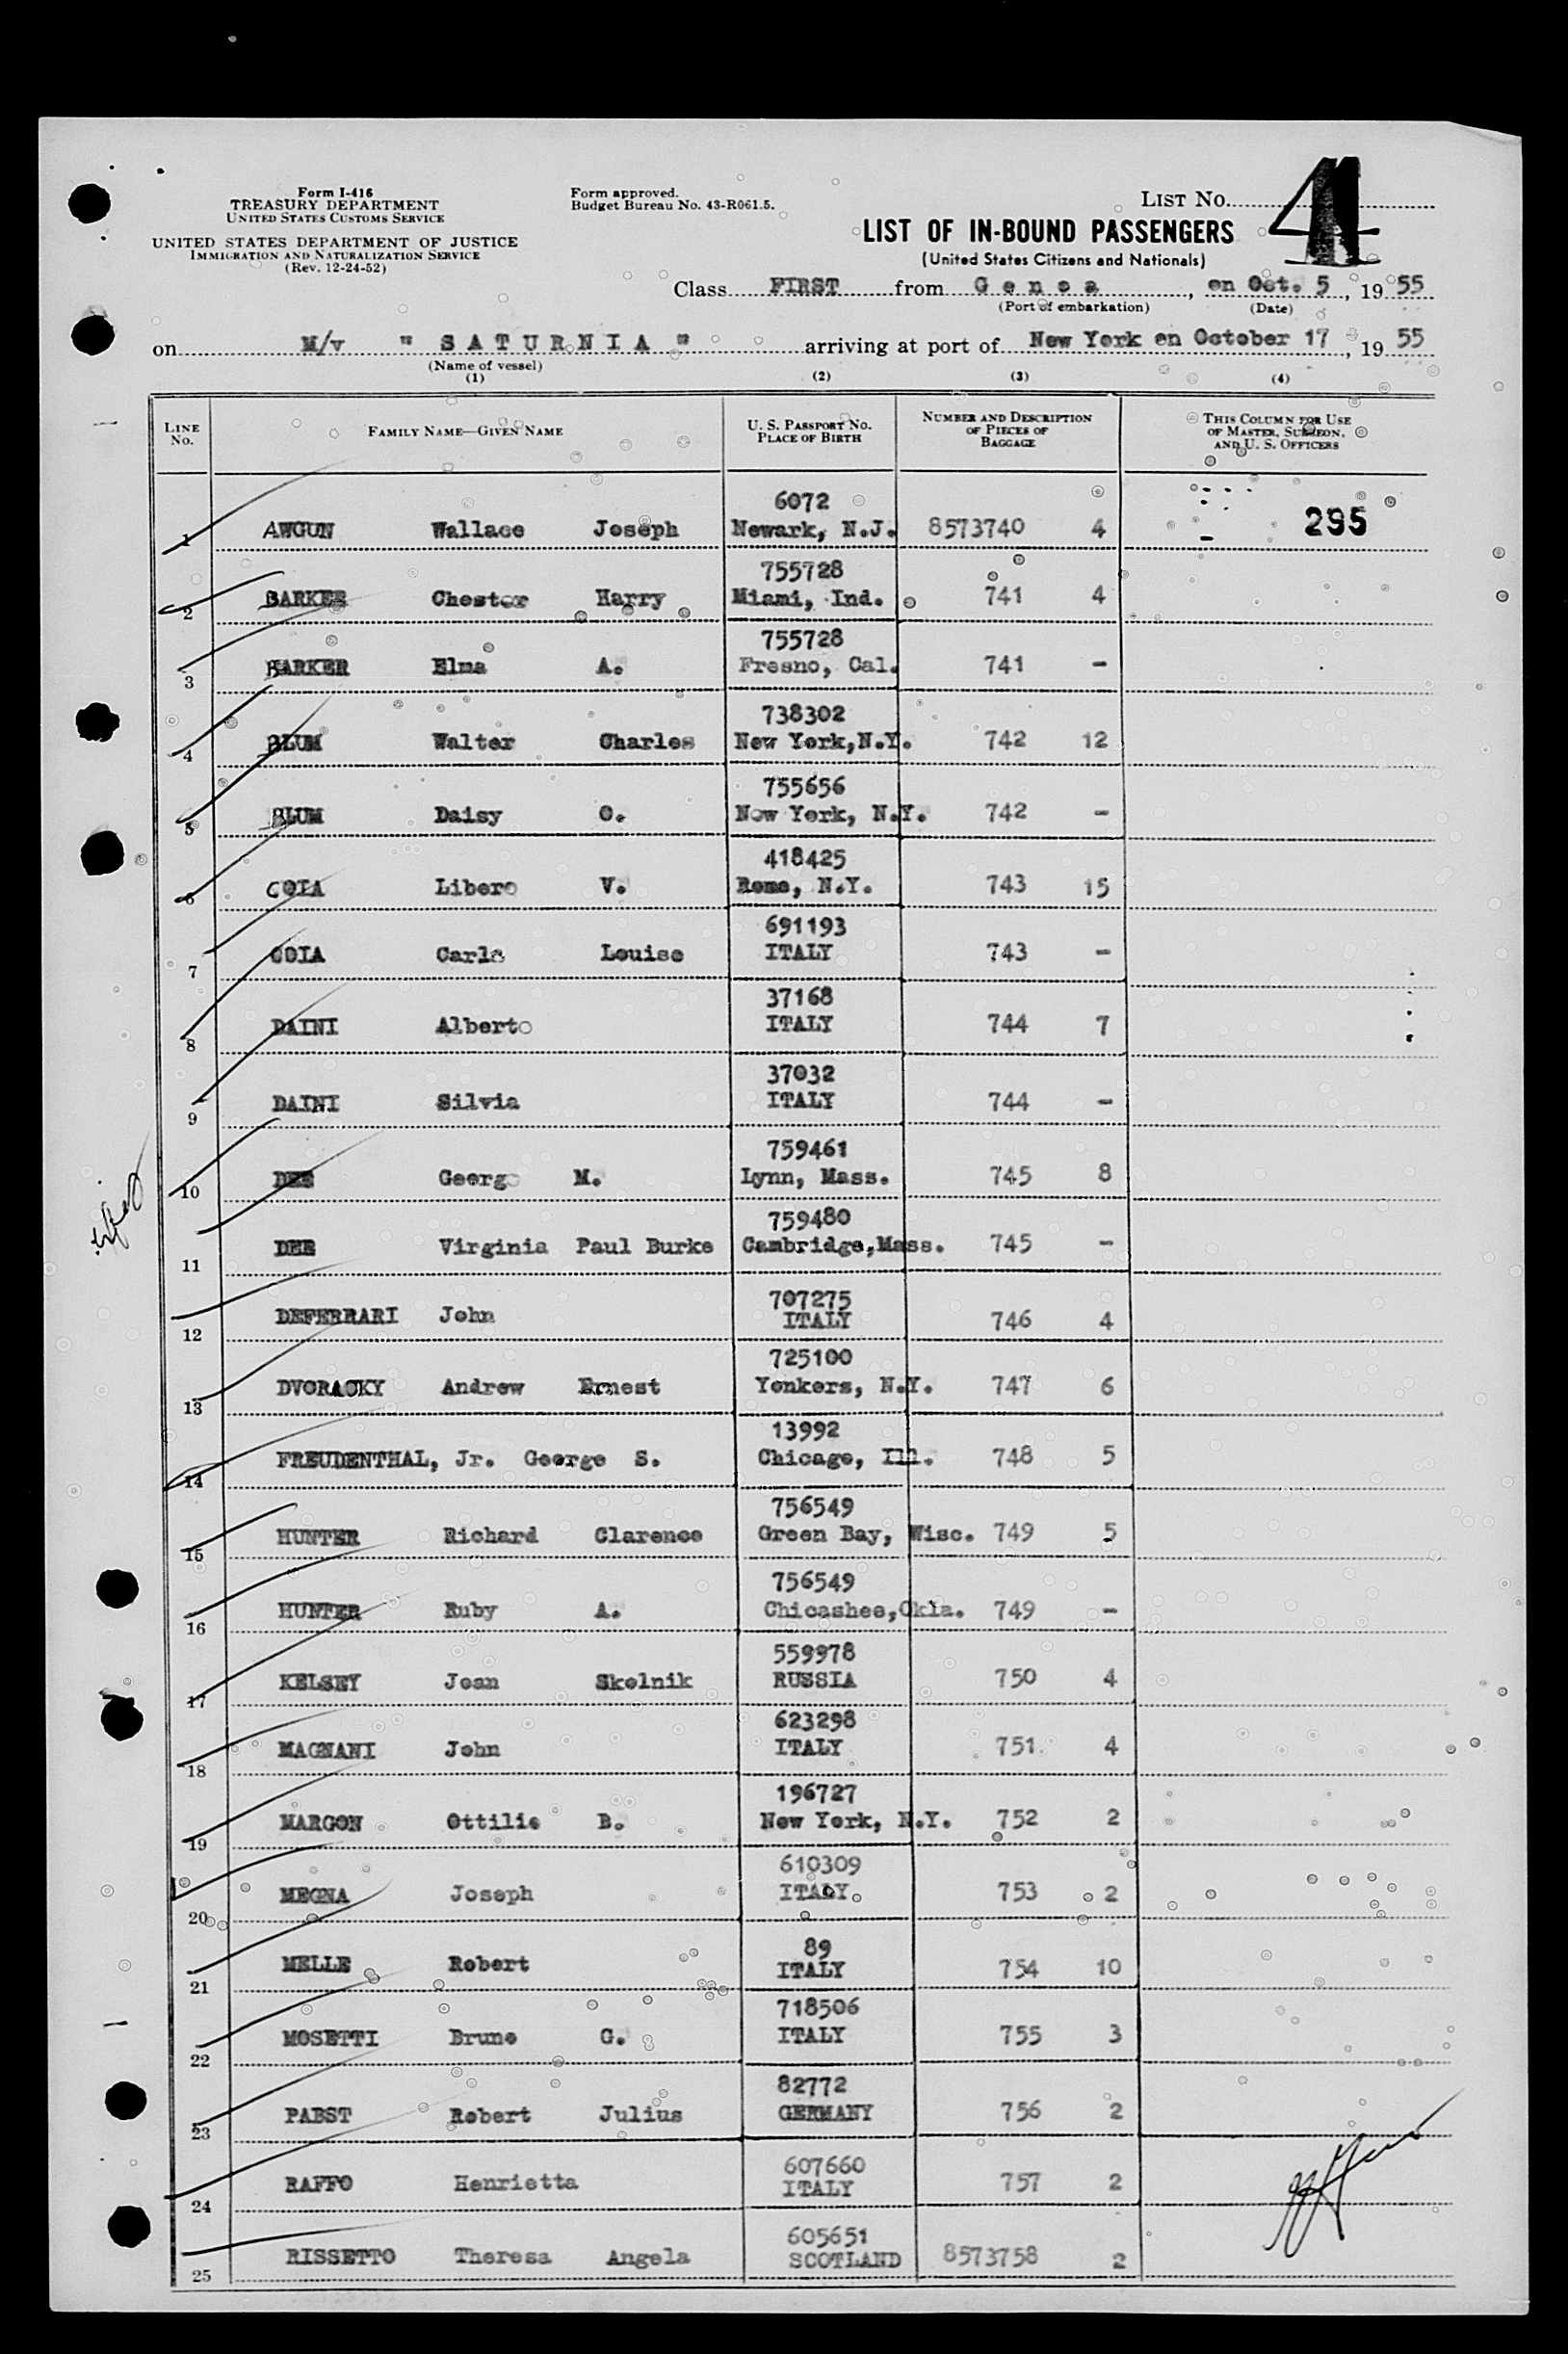 Form I-416
TREASURY DEPARTMENT
UNITED STATES CUSTOMS SERVICE
UNITED STATES DEPARTMENT OF JUSTICE
IMMIGRATION AND NATURALIZATION SERVICE
(Rev. 12-24-52)
Form approved.
Budget Bureau No. 43-R061.5.
LIST NO. 4
LIST OF IN-BOUND PASSENGERS
(United States Citizens and Nationals)
Class FIRST from Genoa, on Oct. 5, 1955
(Port of embarkation) (Date)
on M/v "SATURNIA" arriving at port of New York on October 17, 1955
(Name of vessel)
(1) (2) (3) (4)
LINE NO. FAMILY NAME—GIVEN NAME U. S. PASSPORT NO. PLACE OF BIRTH NUMBER AND DESCRIPTION OF PIECES OF BAGGAGE THIS COLUMN FOR USE OF MASTER, SURGEON, AND U. S. OFFICERS
6072
1 AWGUN Wallace Joseph Newark, N.J. 8573740 4 295
755728
2 BARKER Chester Harry Miami, Ind. 741 4
755728
3 BARKER Elma A. Fresno, Cal. 741 -
738302
4 BLUM Walter Charles New York,N.Y. 742 12
755656
5 BLUM Daisy O. New York, N.Y. 742 -
418425
6 COIA Libero V. Rome, N.Y. 743 15
691193
7 COIA Carla Louise ITALY 743 -
37168
8 DAINI Alberto ITALY 744 7
37032
9 DAINI Silvia ITALY 744 -
759461
10 DEE George M. Lynn, Mass. 745 8
759480
11 DEE Virginia Paul Burke Cambridge,Mass. 745 -
707275
12 DEFERRARI John ITALY 746 4
725100
13 DVORACKY Andrew Ernest Yonkers, N.Y. 747 6
13992
14 FREUDENTHAL, Jr. George S. Chicago, Ill. 748 5
756549
15 HUNTER Richard Clarence Green Bay, Wisc. 749 5
756549
16 HUNTER Ruby A. Chicashee,Okla. 749 -
559978
17 KELSEY Jean Skolnik RUSSIA 750 4
623298
18 MAGNANI John ITALY 751 4
196727
19 MARGON Ottilie B. New York, N.Y. 752 2
610309
20 MEGNA Joseph ITALY 753 2
89
21 MELLE Robert ITALY 754 10
718506
22 MOSETTI Bruno G. ITALY 755 3
82772
23 PABST Robert Julius GERMANY 756 2
607660
24 RAFFO Henrietta ITALY 757 2
605651
25 RISSETTO Theresa Angela SCOTLAND 8573758 2